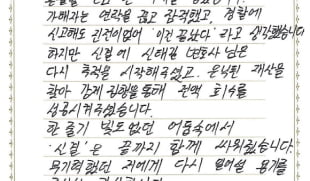 가해자는 연락을 끊고 잠적했고, 경찰에
신고해도 진전이없어 '이건 끝났다' 라고 생각했습니다
하지만 신결에 신태길 변호사님은
다시 추적을 시작해주셨고. 은닉된 재산을
찾아 강제 집행을 통해 전액 회수를
성공시켜주셨습니다.
한 줄기 빛도없던 어둠속에서
'신결'은 끝까지 함께 싸워줬습니다.
무기력했던 저에게 다시 일어설 용기를